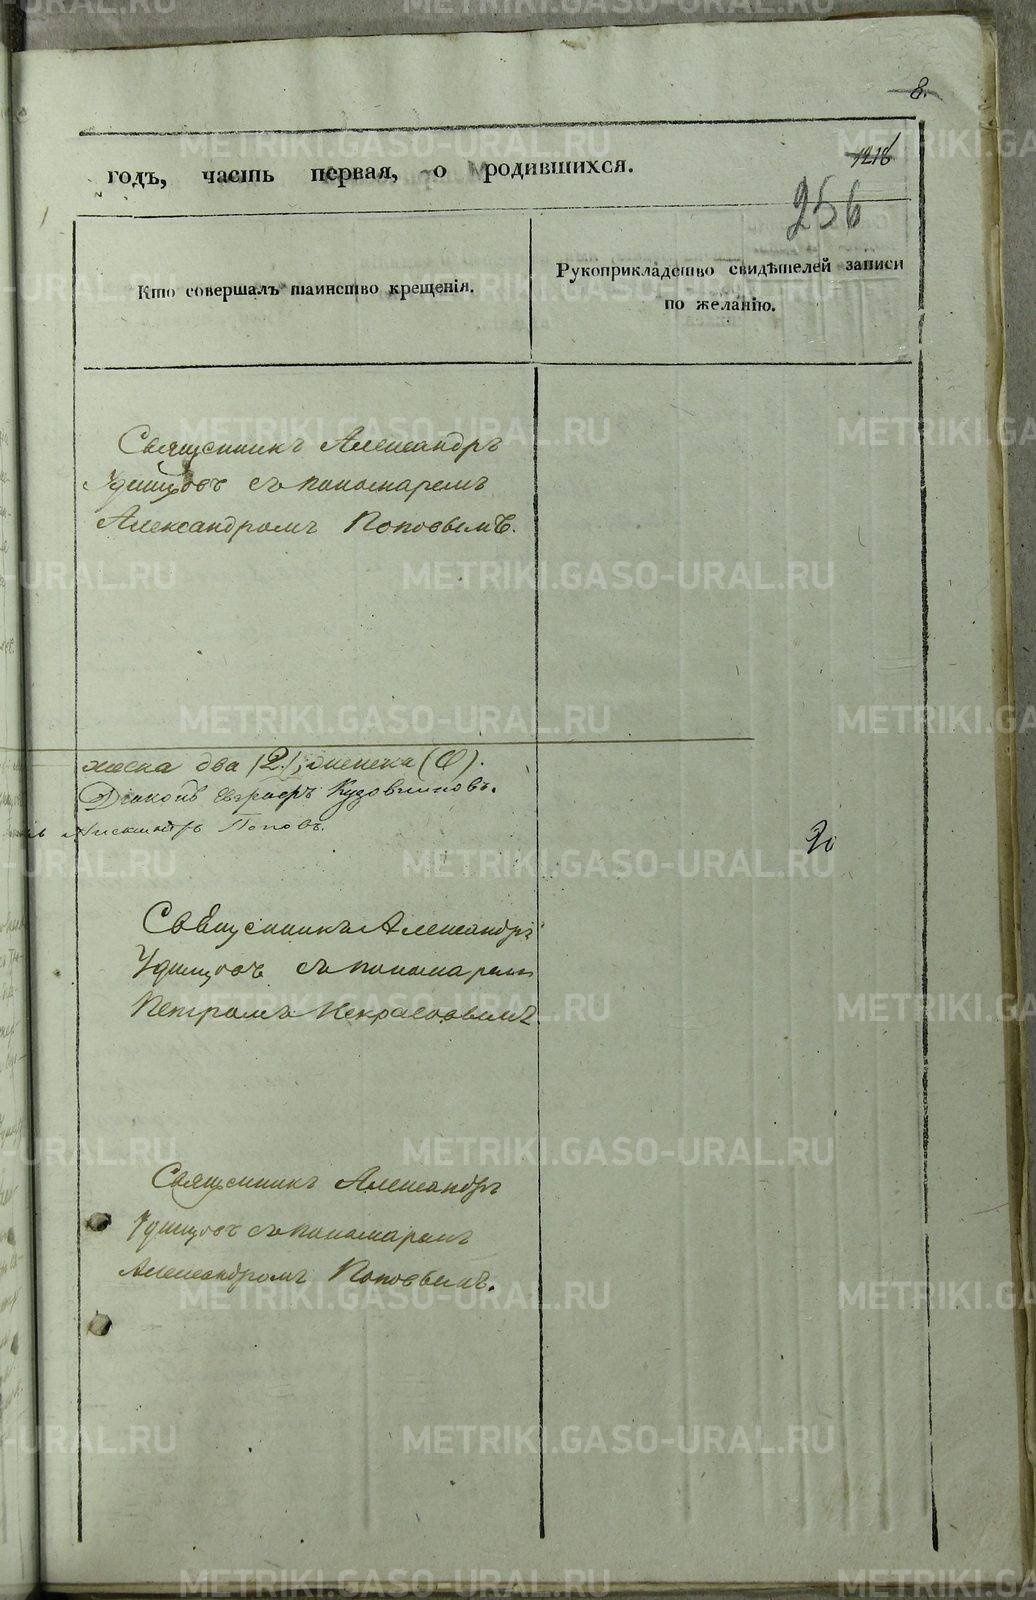 8.
1218
годъ, часть первая, о родившихся.
256
Кто совершалъ таинство крещенія.
Рукоприкладство свидѣтелей записи
по желанію.
Священникъ Александръ
Удинцовъ съ пономаремъ
Александромъ Поповымъ.
два (2),
Діаконъ Кудовчиновъ.
Александръ Поповъ.
Священникъ Александръ
Удинцовъ съ пономаремъ
Петромъ Некрасовымъ
Священникъ Александръ
Удинцовъ съ пономаремъ
Александромъ Поповымъ.
METRIKI.GASO-URAL.RU